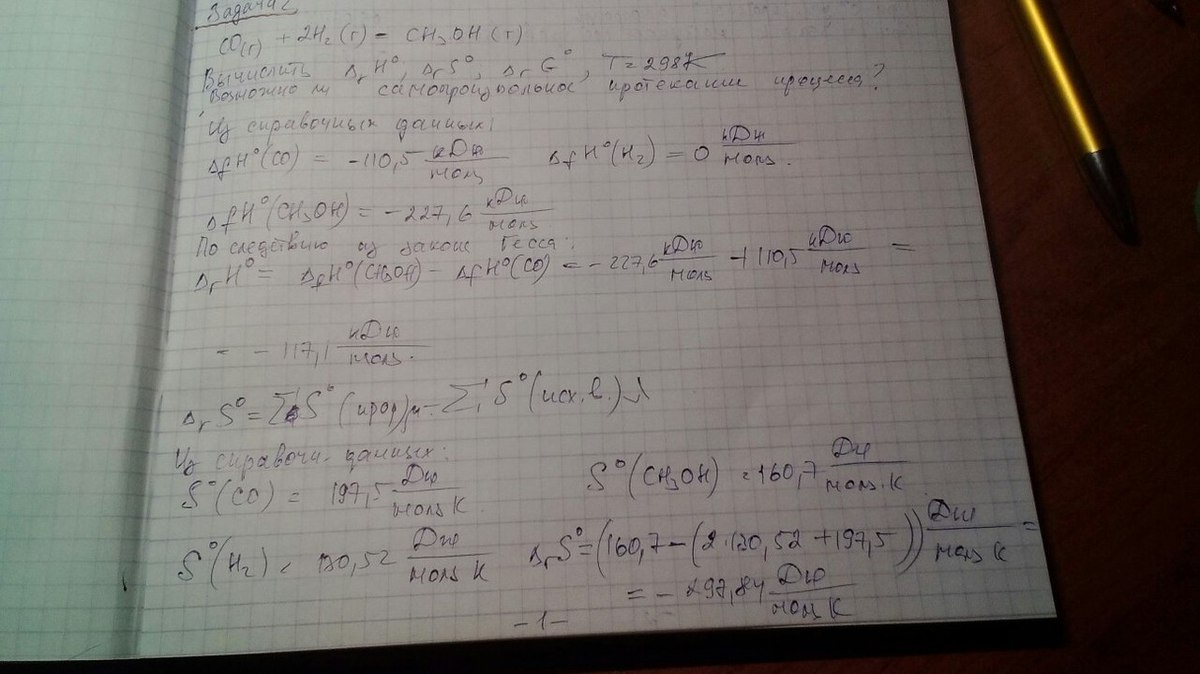 Задача 2
CO(г) + 2H₂(г) = CH₃OH(г)
Вычислить ΔrH°, ΔrS°, ΔrG°, T=298K
Возможно ли самопроизвольное протекание процесса?
Из справочных данных:
ΔfH°(CO) = -110,5 кДж/моль ΔfH°(H₂) = 0 кДж/моль.
ΔfH°(CH₃OH) = -227,6 кДж/моль
По следствию из закона Гесса:
ΔrH° = ΔfH°(CH₃OH) - ΔfH°(CO) = -227,6 кДж/моль + 110,5 кДж/моль =
= -117,1 кДж/моль.
ΔrS° = ΣS°(прод)μ - ΣS°(исх.в.)λ
Из справочн. данных:
S°(CO) = 197,5 Дж/моль K S°(CH₃OH) = 160,7 Дж/моль.K
S°(H₂) = 130,52 Дж/моль K ΔrS° = (160,7-(2·130,52+197,5)) Дж/моль K =
= -297,84 Дж/моль K
-1-